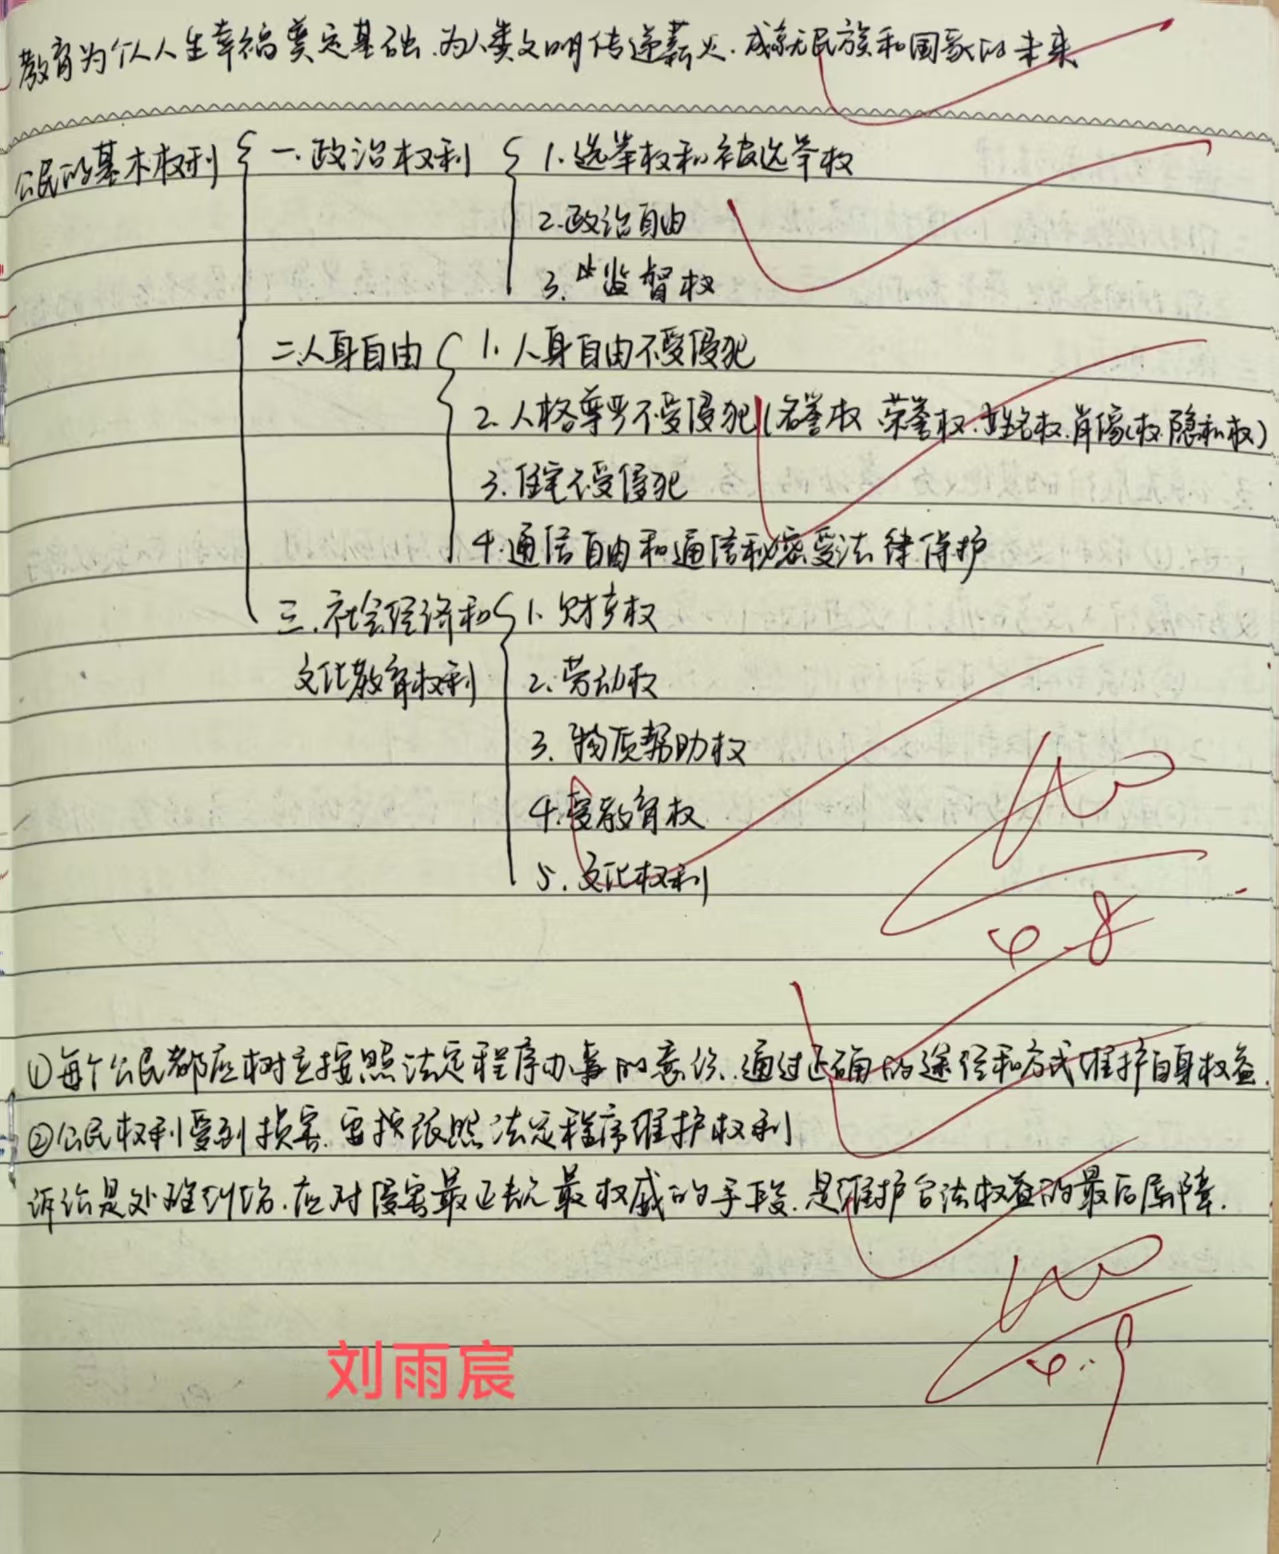 教育为个人人生幸福奠定基础.为人类文明传递薪火.成就民族和国家的未来
公民的基本权利
一.政治权利
1.选举权和被选举权
2.政治自由
3.监督权
二.人身自由
1.人身自由不受侵犯
2.人格尊严不受侵犯(名誉权.荣誉权.姓名权.肖像权.隐私权)
3.住宅不受侵犯
4.通信自由和通信秘密受法律保护
三.社会经济和
文化教育权利
1.财产权
2.劳动权
3.物质帮助权
4.受教育权
5.文化权利
4.8
①每个公民都应树立按照法定程序办事的意识.通过正确的途径和方式维护自身权益.
②公民权利受到损害.要按依照法定程序维护权利
诉讼是处理纠纷.应对侵害最正规最权威的手段.是维护合法权益的最后屏障.
4.9
刘雨宸